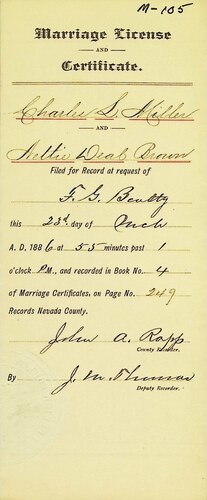 M-105
Marriage License
AND
Certificate.
Charles S. Miller
AND
Nettie Brown
Filed for Record at request of
F. G. Beatty
this 23d day of Mch
A. D. 1886 at 55 minutes past 1
o'clock P.M., and recorded in Book No. 4
of Marriage Certificates, on Page No. 249
Records Nevada County.
John A. Rapp
County Recorder.
By J. M. Thomas
Deputy Recorder.